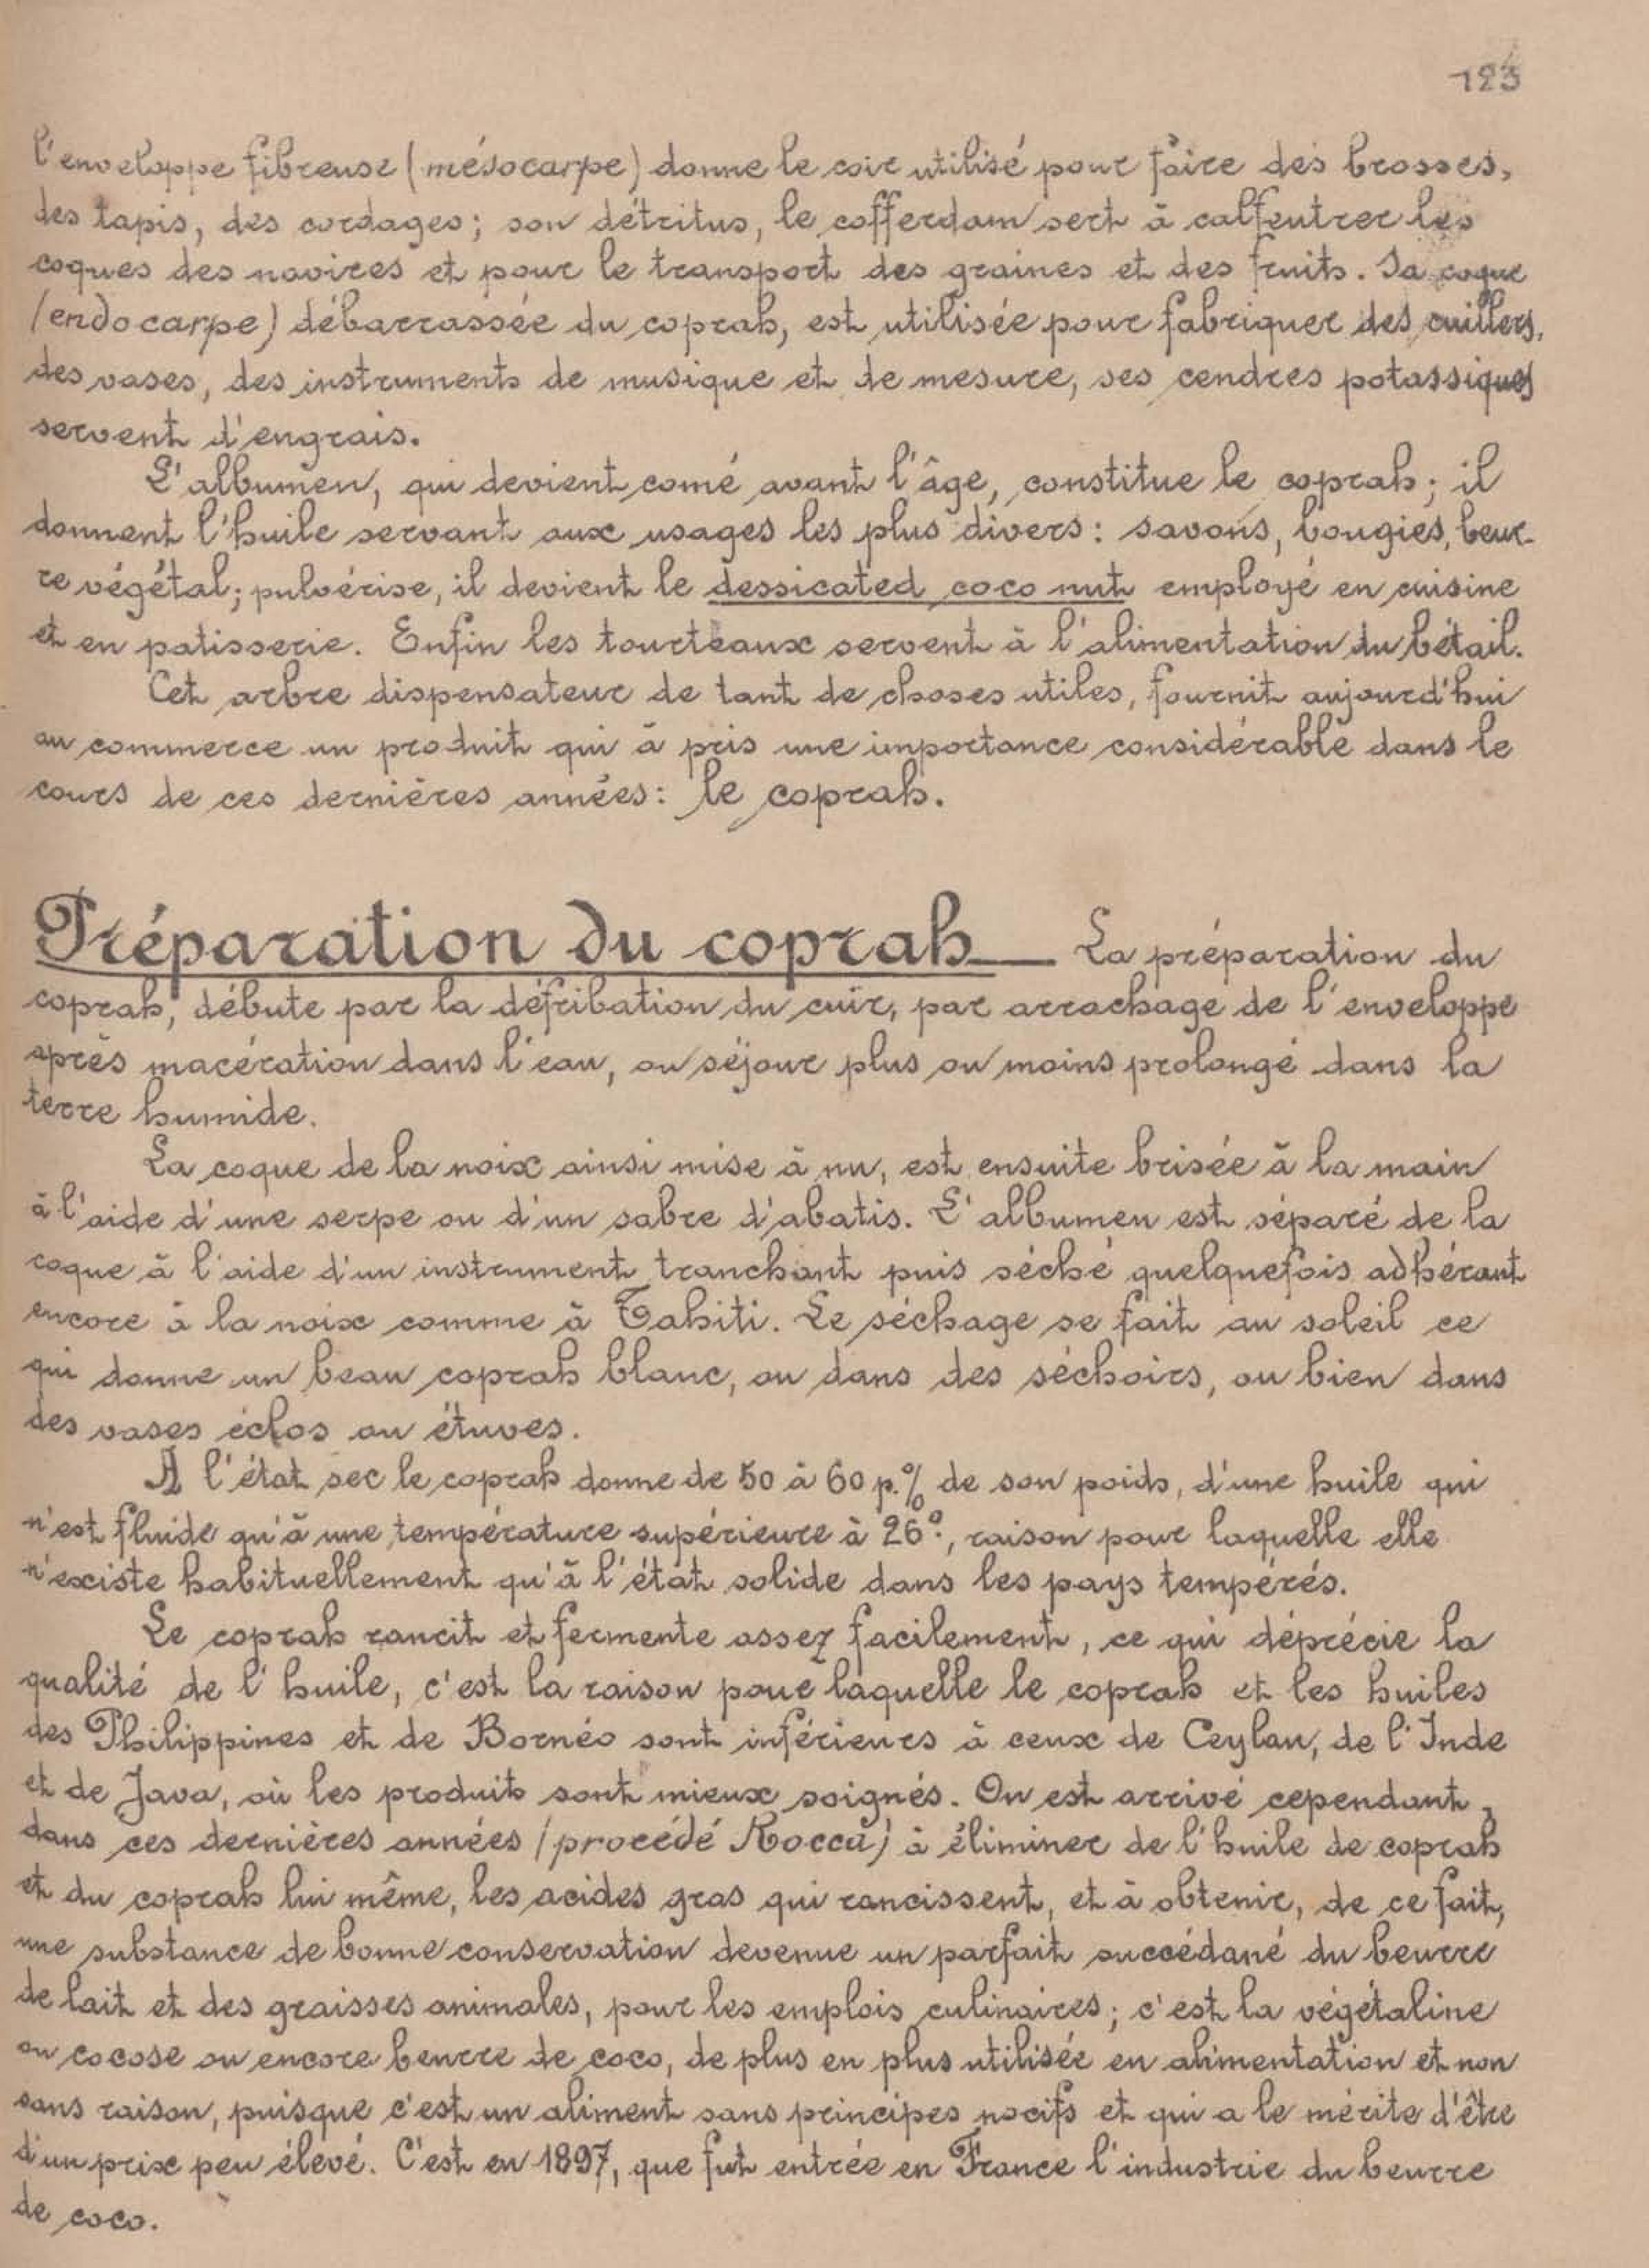 123
l'enveloppe fibreuse (mésocarpe) donne le coir utilisé pour faire des brosses,
des tapis, des cordages; son détritus, le cofferdam sert à calfeutrer les
coques des navires et pour le transport des graines et des fruits. Sa coque
(endocarpe) débarrassée du coprah, est utilisée pour fabriquer des cuillers,
des vases, des instruments de musique et de mesure, ses cendres potassiques
servent d'engrais.
L'albumen, qui devient corné avant l'âge, constitue le coprah; il
donnent l'huile servant aux usages les plus divers: savons, bougies, beur-
re végétal; pulvérise, il devient le dessicated coco nut employé en cuisine
et en patisserie. Enfin les tourteaux servent à l'alimentation du bétail.
Cet arbre dispensateur de tant de choses utiles, fournit aujourd'hui
au commerce un produit qui à pris une importance considérable dans le
cours de ces dernières années: le coprah.
Préparation du coprah— La préparation du
coprah, débute par la défribation du cuir, par arrachage de l'enveloppe
après macération dans l'eau, ou séjour plus ou moins prolongé dans la
terre humide.
La coque de la noix ainsi mise à nu, est ensuite brisée à la main
à l'aide d'une serpe ou d'un sabre d'abatis. L'albumen est séparé de la
coque à l'aide d'un instrument tranchant puis séché quelquefois adhérant
encore à la noix comme à Tahiti. Le séchage se fait au soleil ce
qui donne un beau coprah blanc, ou dans des séchoirs, ou bien dans
des vases éclos ou étuves.
A l'état sec le coprah donne de 50 à 60 p.% de son poids, d'une huile qui
n'est fluide qu'à une température supérieure à 26°, raison pour laquelle elle
n'existe habituellement qu'à l'état solide dans les pays tempérés.
Le coprah rancit et fermente assez facilement, ce qui déprécie la
qualité de l'huile, c'est la raison pour laquelle le coprah et les huiles
des Philippines et de Bornéo sont inférieurs à ceux de Ceylan, de l'Inde
et de Java, où les produits sont mieux soignés. On est arrivé cependant,
dans ces dernières années (procédé Rocca) à éliminer de l'huile de coprah
et du coprah lui même, les acides gras qui rancissent, et à obtenir, de ce fait,
une substance de bonne conservation devenue un parfait succédané du beurre
de lait et des graisses animales, pour les emplois culinaires; c'est la végétaline
ou cocose ou encore beurre de coco, de plus en plus utilisée en alimentation et non
sans raison, puisque c'est un aliment sans principes nocifs et qui a le mérite d'être
d'un prix peu élevé. C'est en 1897, que fut entrée en France l'industrie du beurre
de coco.